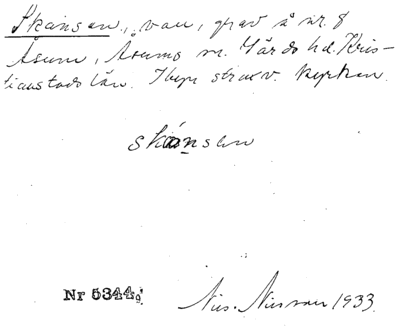 Skansen, vall, grav å nr. 8
Åsum, Åsums sn. Gärds hd. Kris-
tianstads län. I byn strax v. kyrkan.
skansen
Nr 5344
Nils Nilsson 1933.